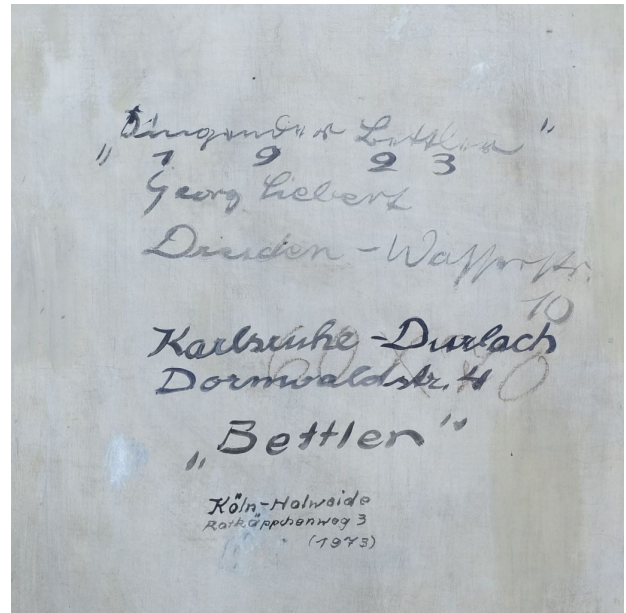 „Singender Bettler"
1 9 2 3
Georg Siebert
Dresden - Wasserstr.
10
Karlsruhe - Durlach
60 x 70
Dornwaldstr. 4
„Bettler"
Köln-Holweide
Rotkäppchenweg 3
(1973)